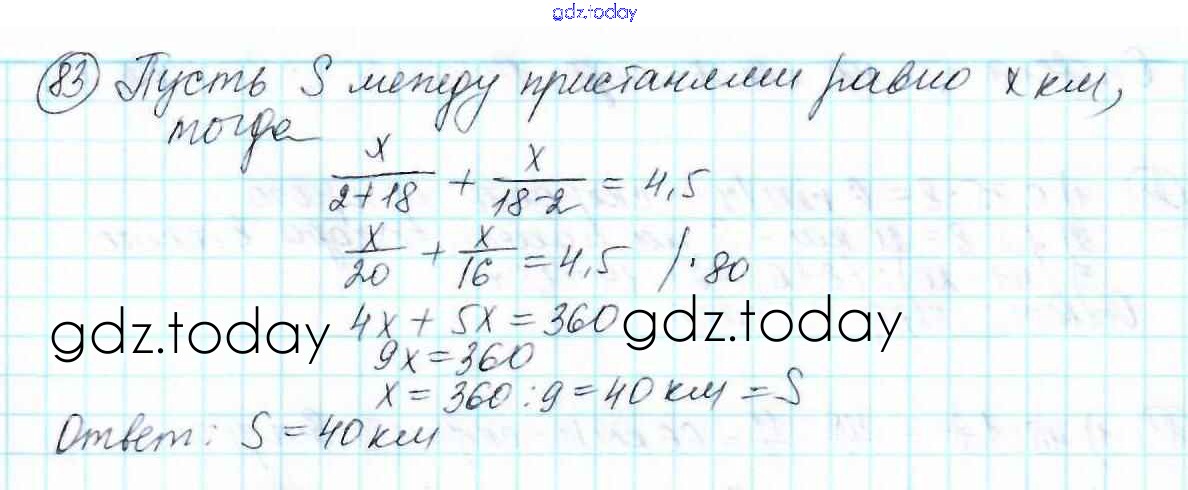 gdz.today
83 Пусть S между пристанями равно x км,
тогда
x/(2+18) + x/(18-2) = 4,5
x/20 + x/16 = 4,5 /·80
gdz.today 4x + 5x = 360 gdz.today
9x = 360
x = 360 : 9 = 40 км = S
Ответ: S = 40 км